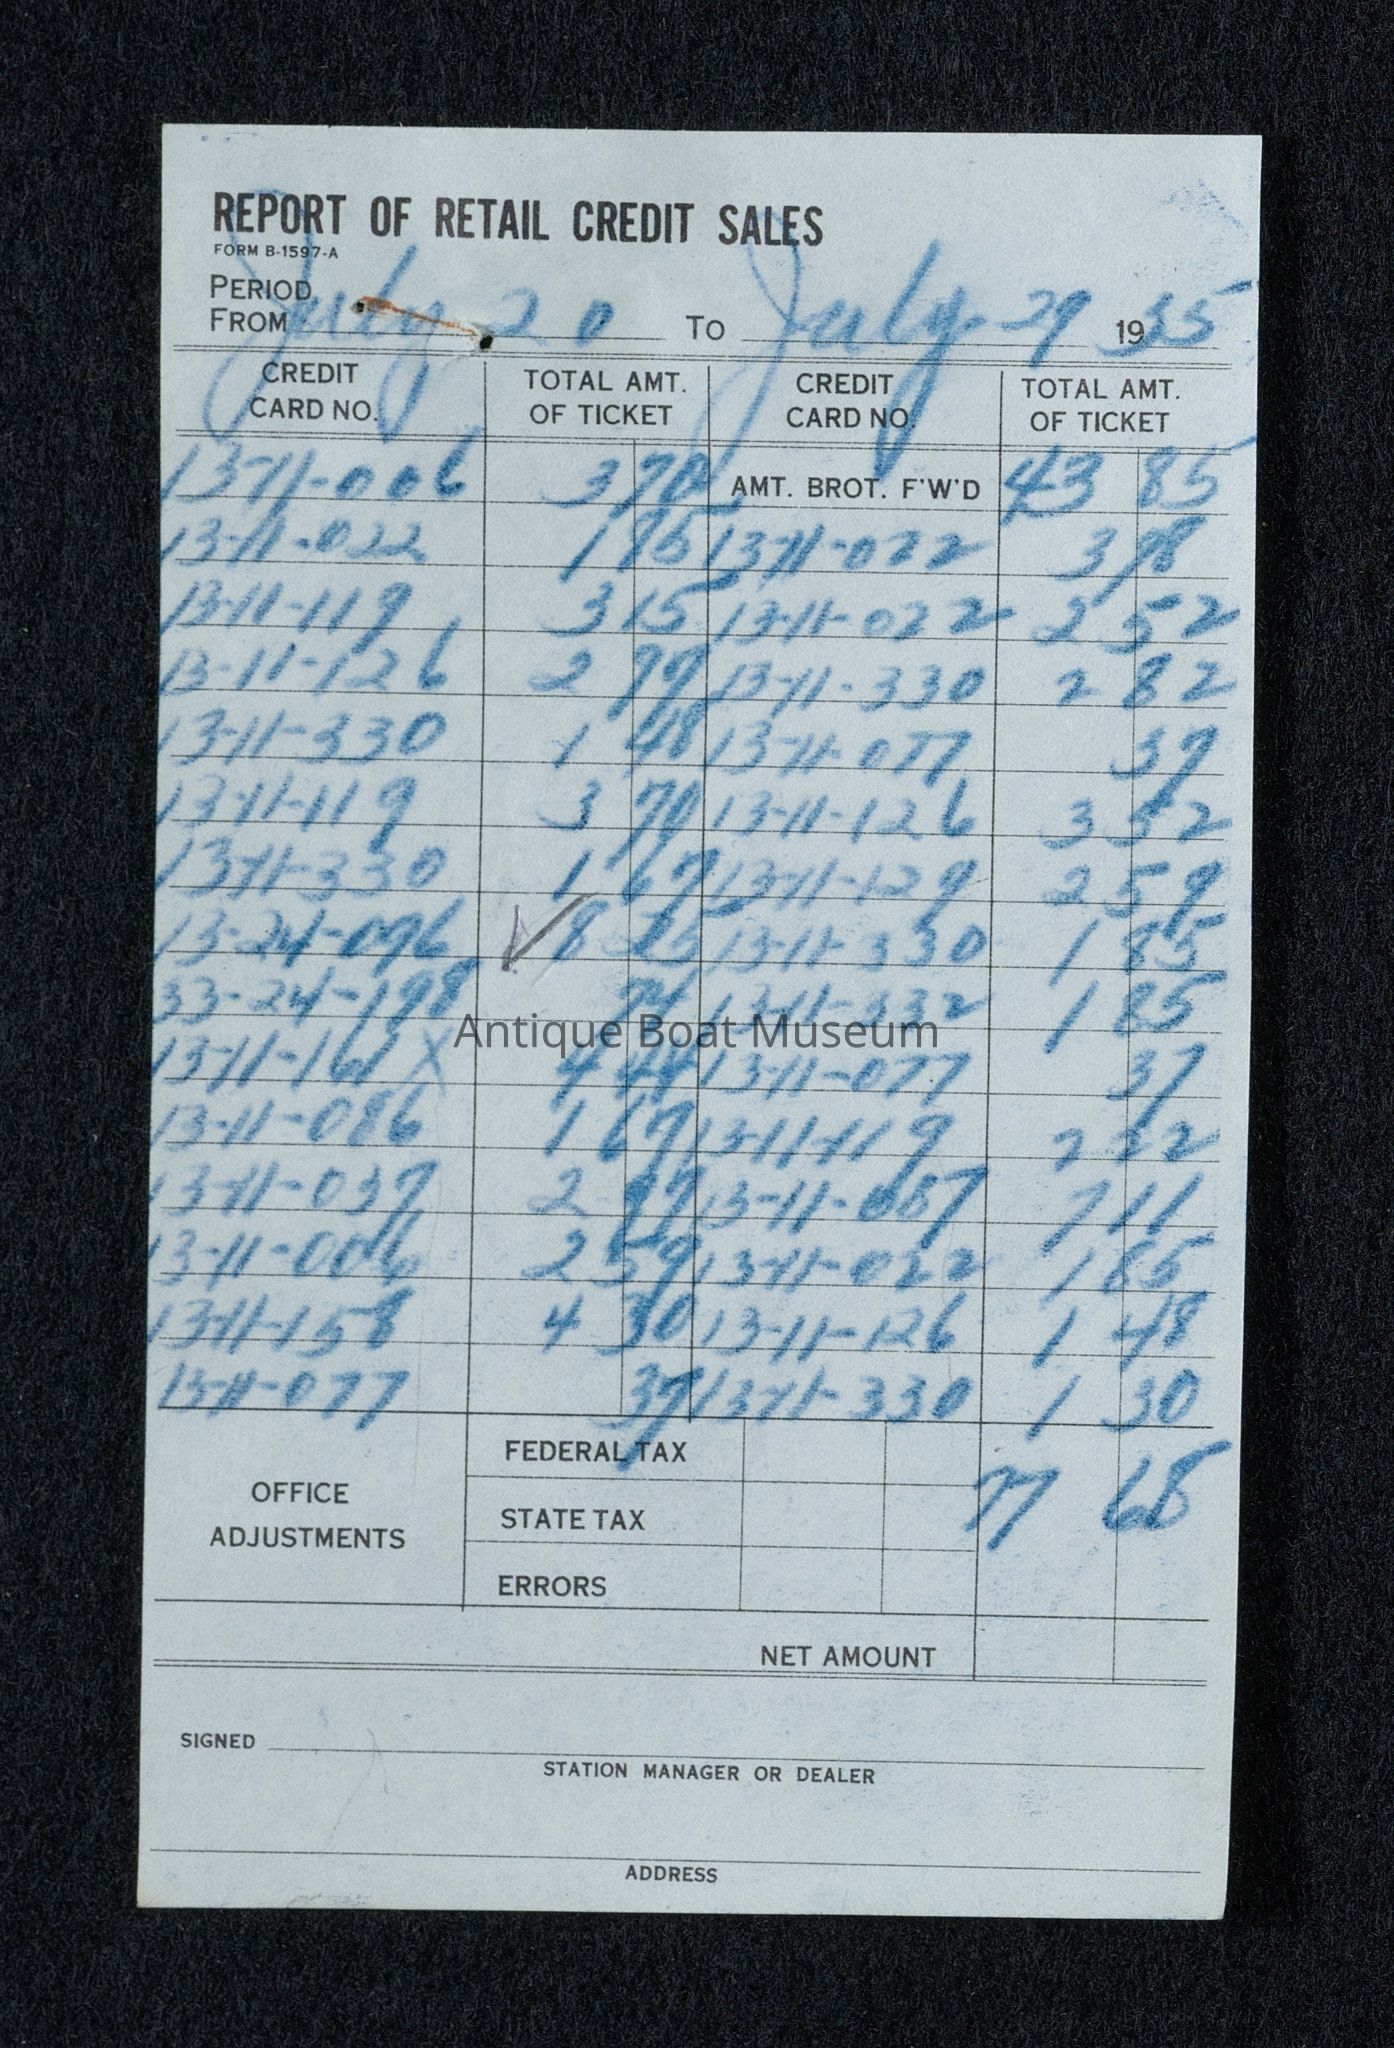 REPORT OF RETAIL CREDIT SALES
FORM B-1597-A
PERIOD
FROM July 20 TO July 29 1955
CREDIT CARD NO. TOTAL AMT. OF TICKET CREDIT CARD NO. TOTAL AMT. OF TICKET
13-11-006 3 70 AMT. BROT. F'W'D 43 85
13-11-022 1 75 13-11-022 3 78
13-11-119 3 15 13-11-022 2 52
13-11-126 2 99 13-11-330 2 82
13-11-330 1 48 13-11-077 37
13-11-119 3 70 13-11-126 3 52
13-11-330 1 67 13-11-129 2 59
13-24-096 8 25 13-11-330 1 85
33-24-198 74 13-11-332 1 85
13-11-161 X 4 44 13-11-077 37
13-11-086 1 67 13-11-119 2 22
13-11-037 2 13-11-057 7 11
13-11-006 2 59 13-11-022 1 85
13-11-158 4 30 13-11-126 1 48
13-11-077 37 13-11-330 1 30
OFFICE ADJUSTMENTS
FEDERAL TAX
77 68
STATE TAX
ERRORS
NET AMOUNT
SIGNED
STATION MANAGER OR DEALER
ADDRESS
Antique Boat Museum